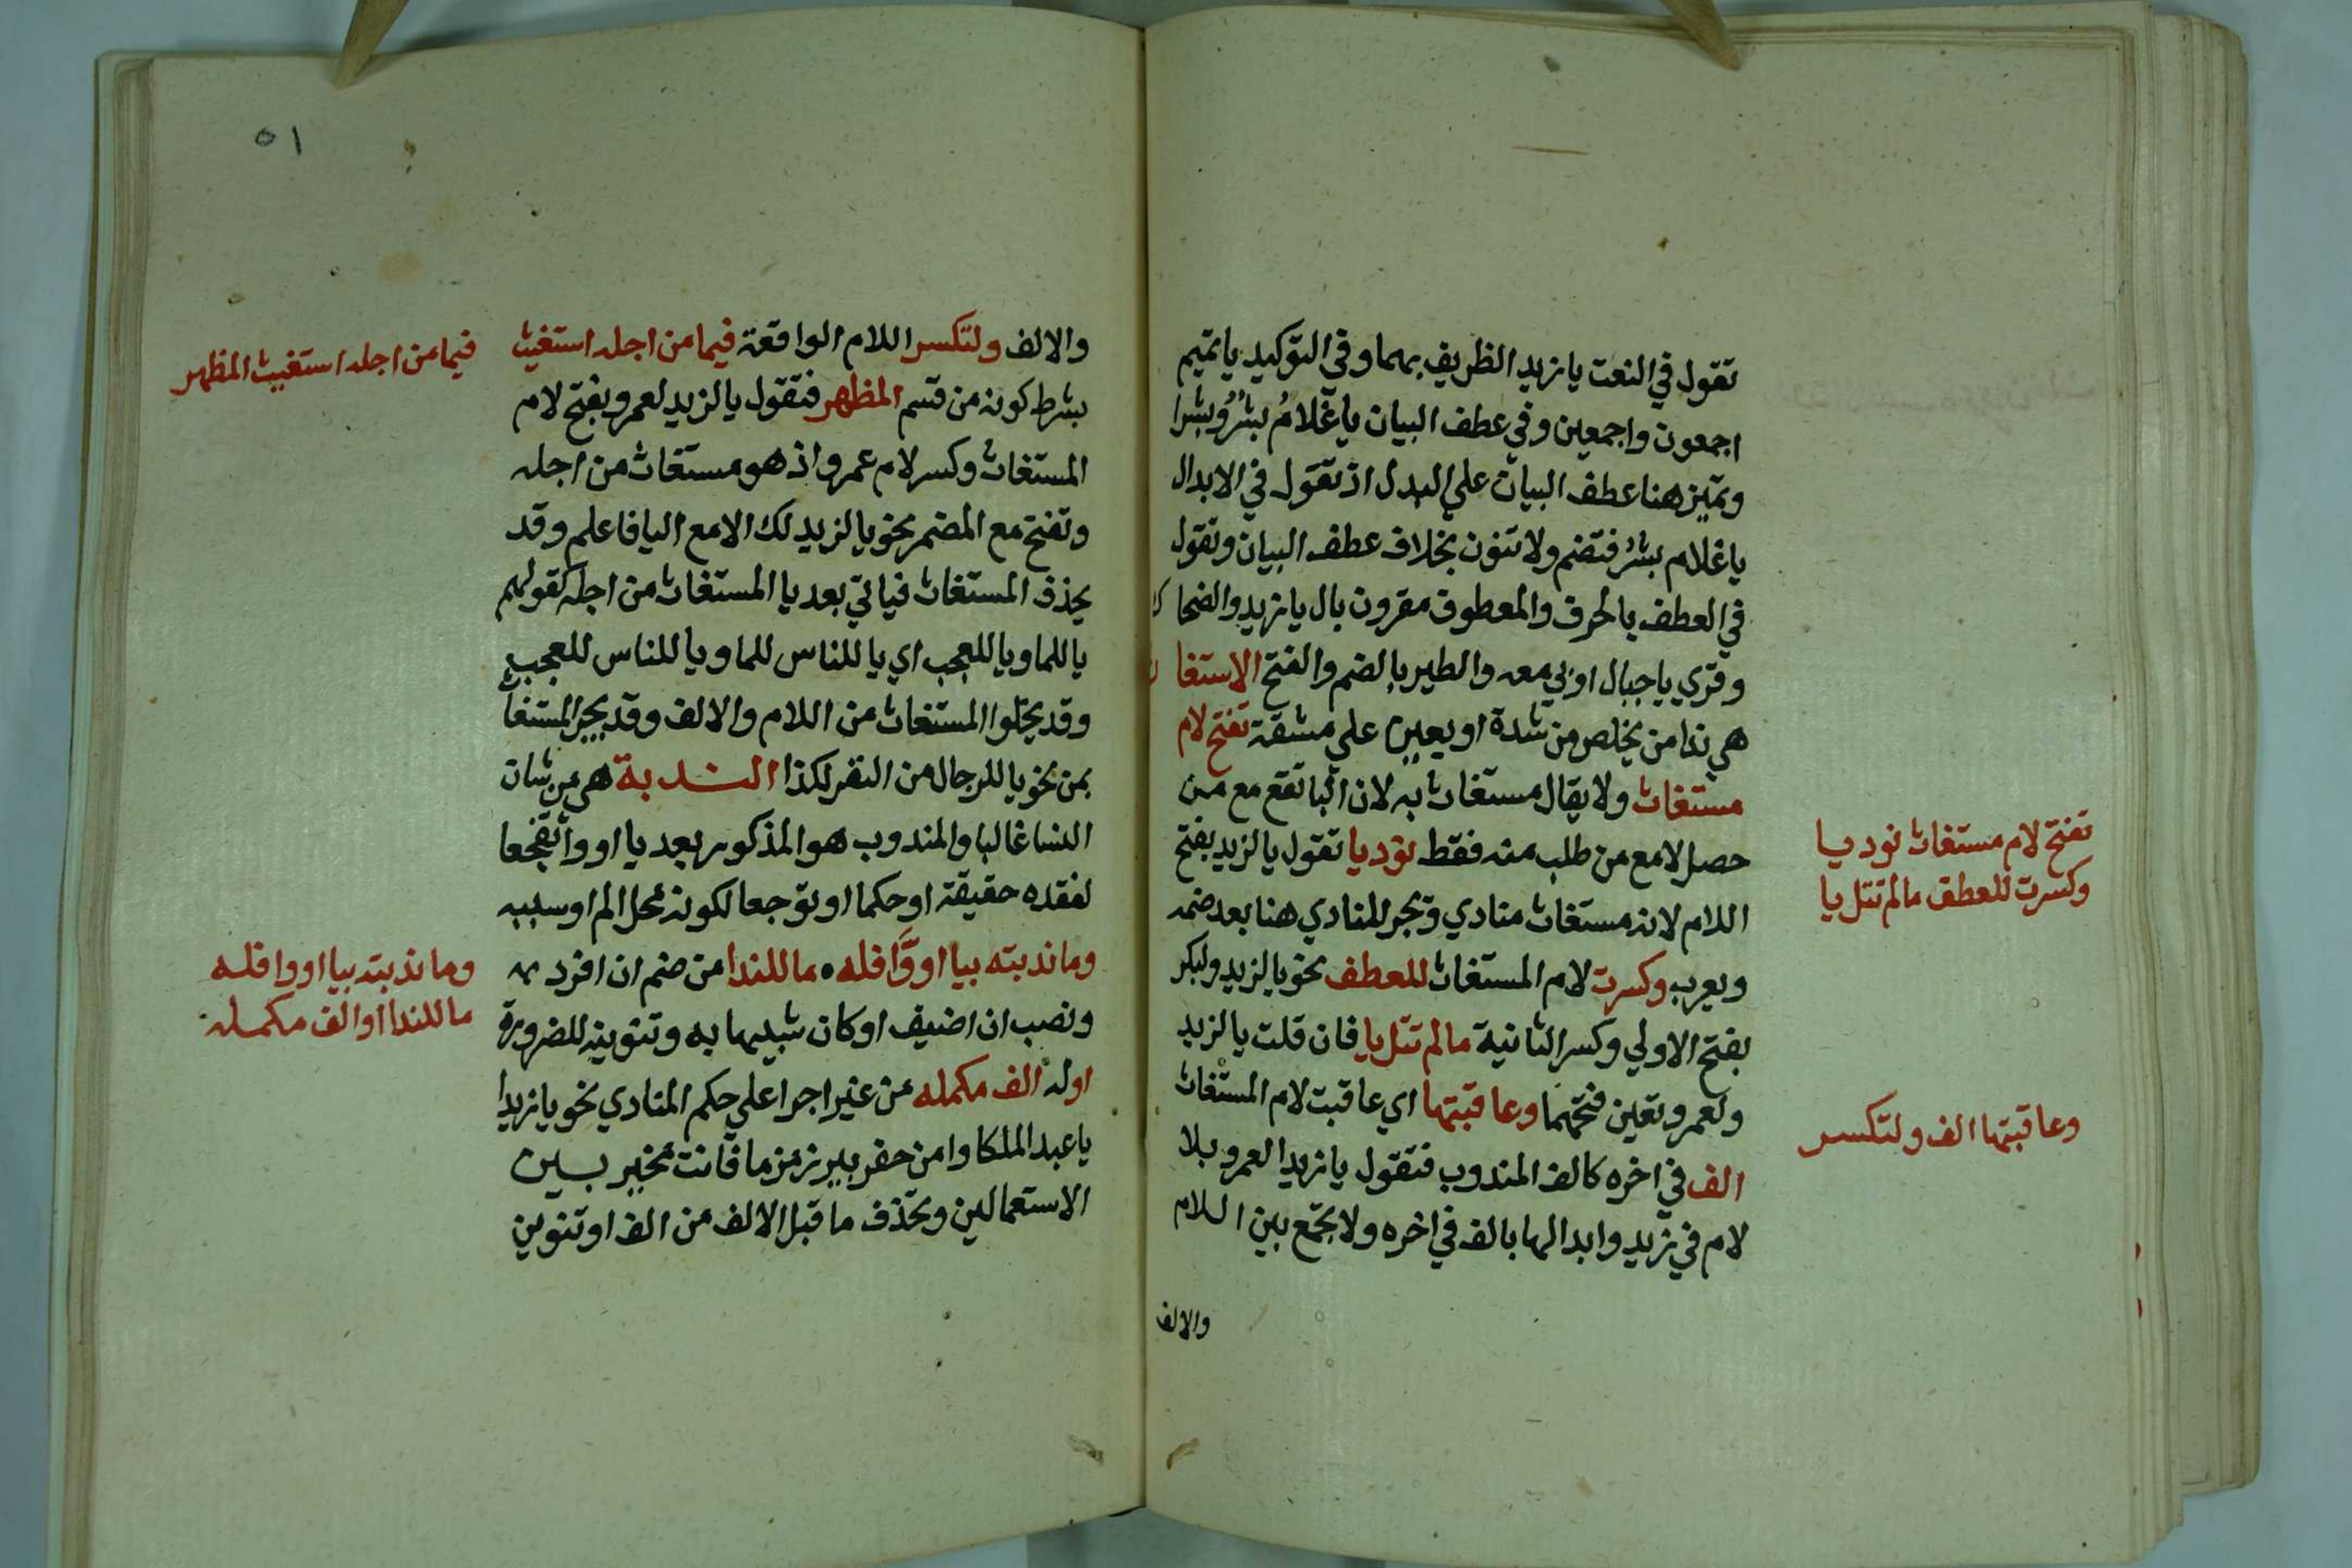 تقول في النعت يا زيد الظريف بهما وفي التوكيد يا تميم
اجمعون واجمعين وفي عطف البيان يا غلامُ بشرٌ وبشرا
وتميز هنا عطف البيان علي البدل اذ تقول في الابدال
يا غلام بشرُ فتضم ولا تنون بخلاف عطف البيان وتقول
في العطف بالحرف والمعطوف مقرون بال يا زيد والضحاك
وقري يا جبال اوبي معه والطير بالضم والفتح الاستغاث
هي ندا من يخلص من شدة او يعين علي مشقة تفتح لام
مستغاث ولا يقال مستغاث به لان البا تقع مع من
حصل لا مع من طلب منه فقط نوديا تقول يا لزيد بفتح
اللام لانه مستغاث منادي وتجر المنادي هنا بعد ضمه
ويعرب وكسرت لام المستغاث للعطف نحو يا لزيد ولبكر
بفتح الاولي وكسر الثانية ما لم تتل يا فان قلت يا لزيد
ولعمرو تعين فتحهما وعاقبتها اي عاقبت لام المستغاث
الف في اخره كالف المندوب فتقول يا زيدا لعمرو بلا
لام في زيد وابدالها بالف في اخره ولا تجمع بين اللام
والالف
تفتح لام مستغاث نوديا
وكسرت للعطف ما لم تتل يا
وعاقبتها الف ولتكسر
٥١
والالف ولتكسر اللام الواقعة فيما من اجله استغيث
بشرط كونه من قسم المظهر فتقول يا لزيد لعمرو بفتح لام
المستغاث وكسر لام عمرو اذ هو مستغاث من اجله
وتفتح مع المضمر نحو يا لزيد لك الا مع اليا فاعلم وقد
يحذف المستغاث فياتي بعد يا المستغاث من اجله كقولهم
يا للما ويا للعجب اي يا للناس للما ويا للناس للعجب
وقد يخلوا المستغاث من اللام والالف وقد يجر المستغاث
بمن نحو يا للرجال من النفر لكذا الندبة هي من شان
النسا غالبا والمندوب هو المذكور بعد يا او وا تفجعا
لفقده حقيقة او حكما او توجعا لكونه محل الم او سببه
وما ندبته بيا او وَا فله ٥ ما للندا من ضم ان افرد
ونصب ان اضيف او كان شبيها به وتنوينه للضرورة
او له الف مكمله من غير اجرا علي حكم المنادي نحو يا زيدا
يا عبد الملكا وا من حفر بير زمزما فانت مخير بين
الاستعمالين وتحذف ما قبل الالف من الف او تنوين
فيما من اجله استغيث المظهر
وما ندبته بيا او وا فله
ما للندا او الف مكمله